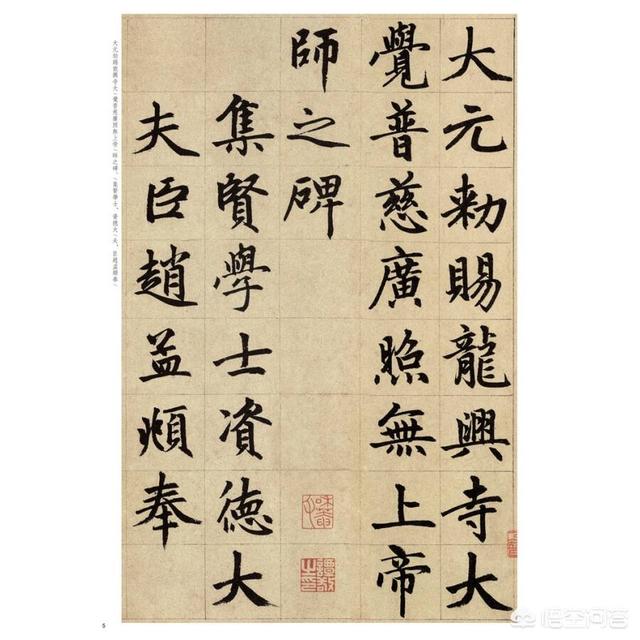 大元勑賜龍興寺大
覺普慈廣照無上帝
師之碑
集賢學士資德大
夫臣趙孟頫奉
大元敕賜龍興寺大/覺普慈廣照無上帝/師之碑。/集賢學士、資德大/夫、臣趙孟頫奉/
5
悟空问答